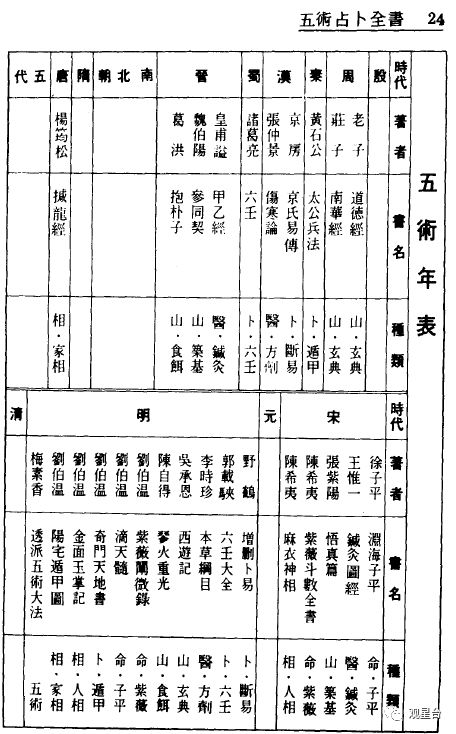 五術占卜全書 24
五術年表
時代 著者 書名 種類
殷
周
老子 道德經 山・玄典
莊子 南華經 山・玄典
秦
黃石公 太公兵法 卜・遁甲
漢
京房 京氏易傳 卜・斷易
張仲景 傷寒論 醫・方劑
蜀
諸葛亮 六壬 卜・六壬
晉
皇甫謐 甲乙經 醫・鍼灸
魏伯陽 參同契 山・築基
葛洪 抱朴子 山・食餌
南北朝
隋
唐
楊筠松 撼龍經 相・家相
五代
時代 著者 書名 種類
宋
徐子平 淵海子平 命・子平
王惟一 鍼灸圖經 醫・鍼灸
張紫陽 悟真篇 山・築基
陳希夷 紫薇斗數全書 命・紫薇
陳希夷 麻衣神相 相・人相
元
明
野鶴 增刪卜易 卜・斷易
郭載騋 六壬大全 卜・六壬
李時珍 本草綱目 醫・方劑
吳承恩 西遊記 山・玄典
陳自得 琴火重光 山・食餌
劉伯溫 紫薇闡微錄 命・紫薇
劉伯溫 滴天髓 命・子平
劉伯溫 奇門天地書 卜・遁甲
劉伯溫 金面玉掌記 相・人相
劉伯溫 陽宅遁甲圖 相・家相
清
梅素香 透派五術大法 五術
观星台